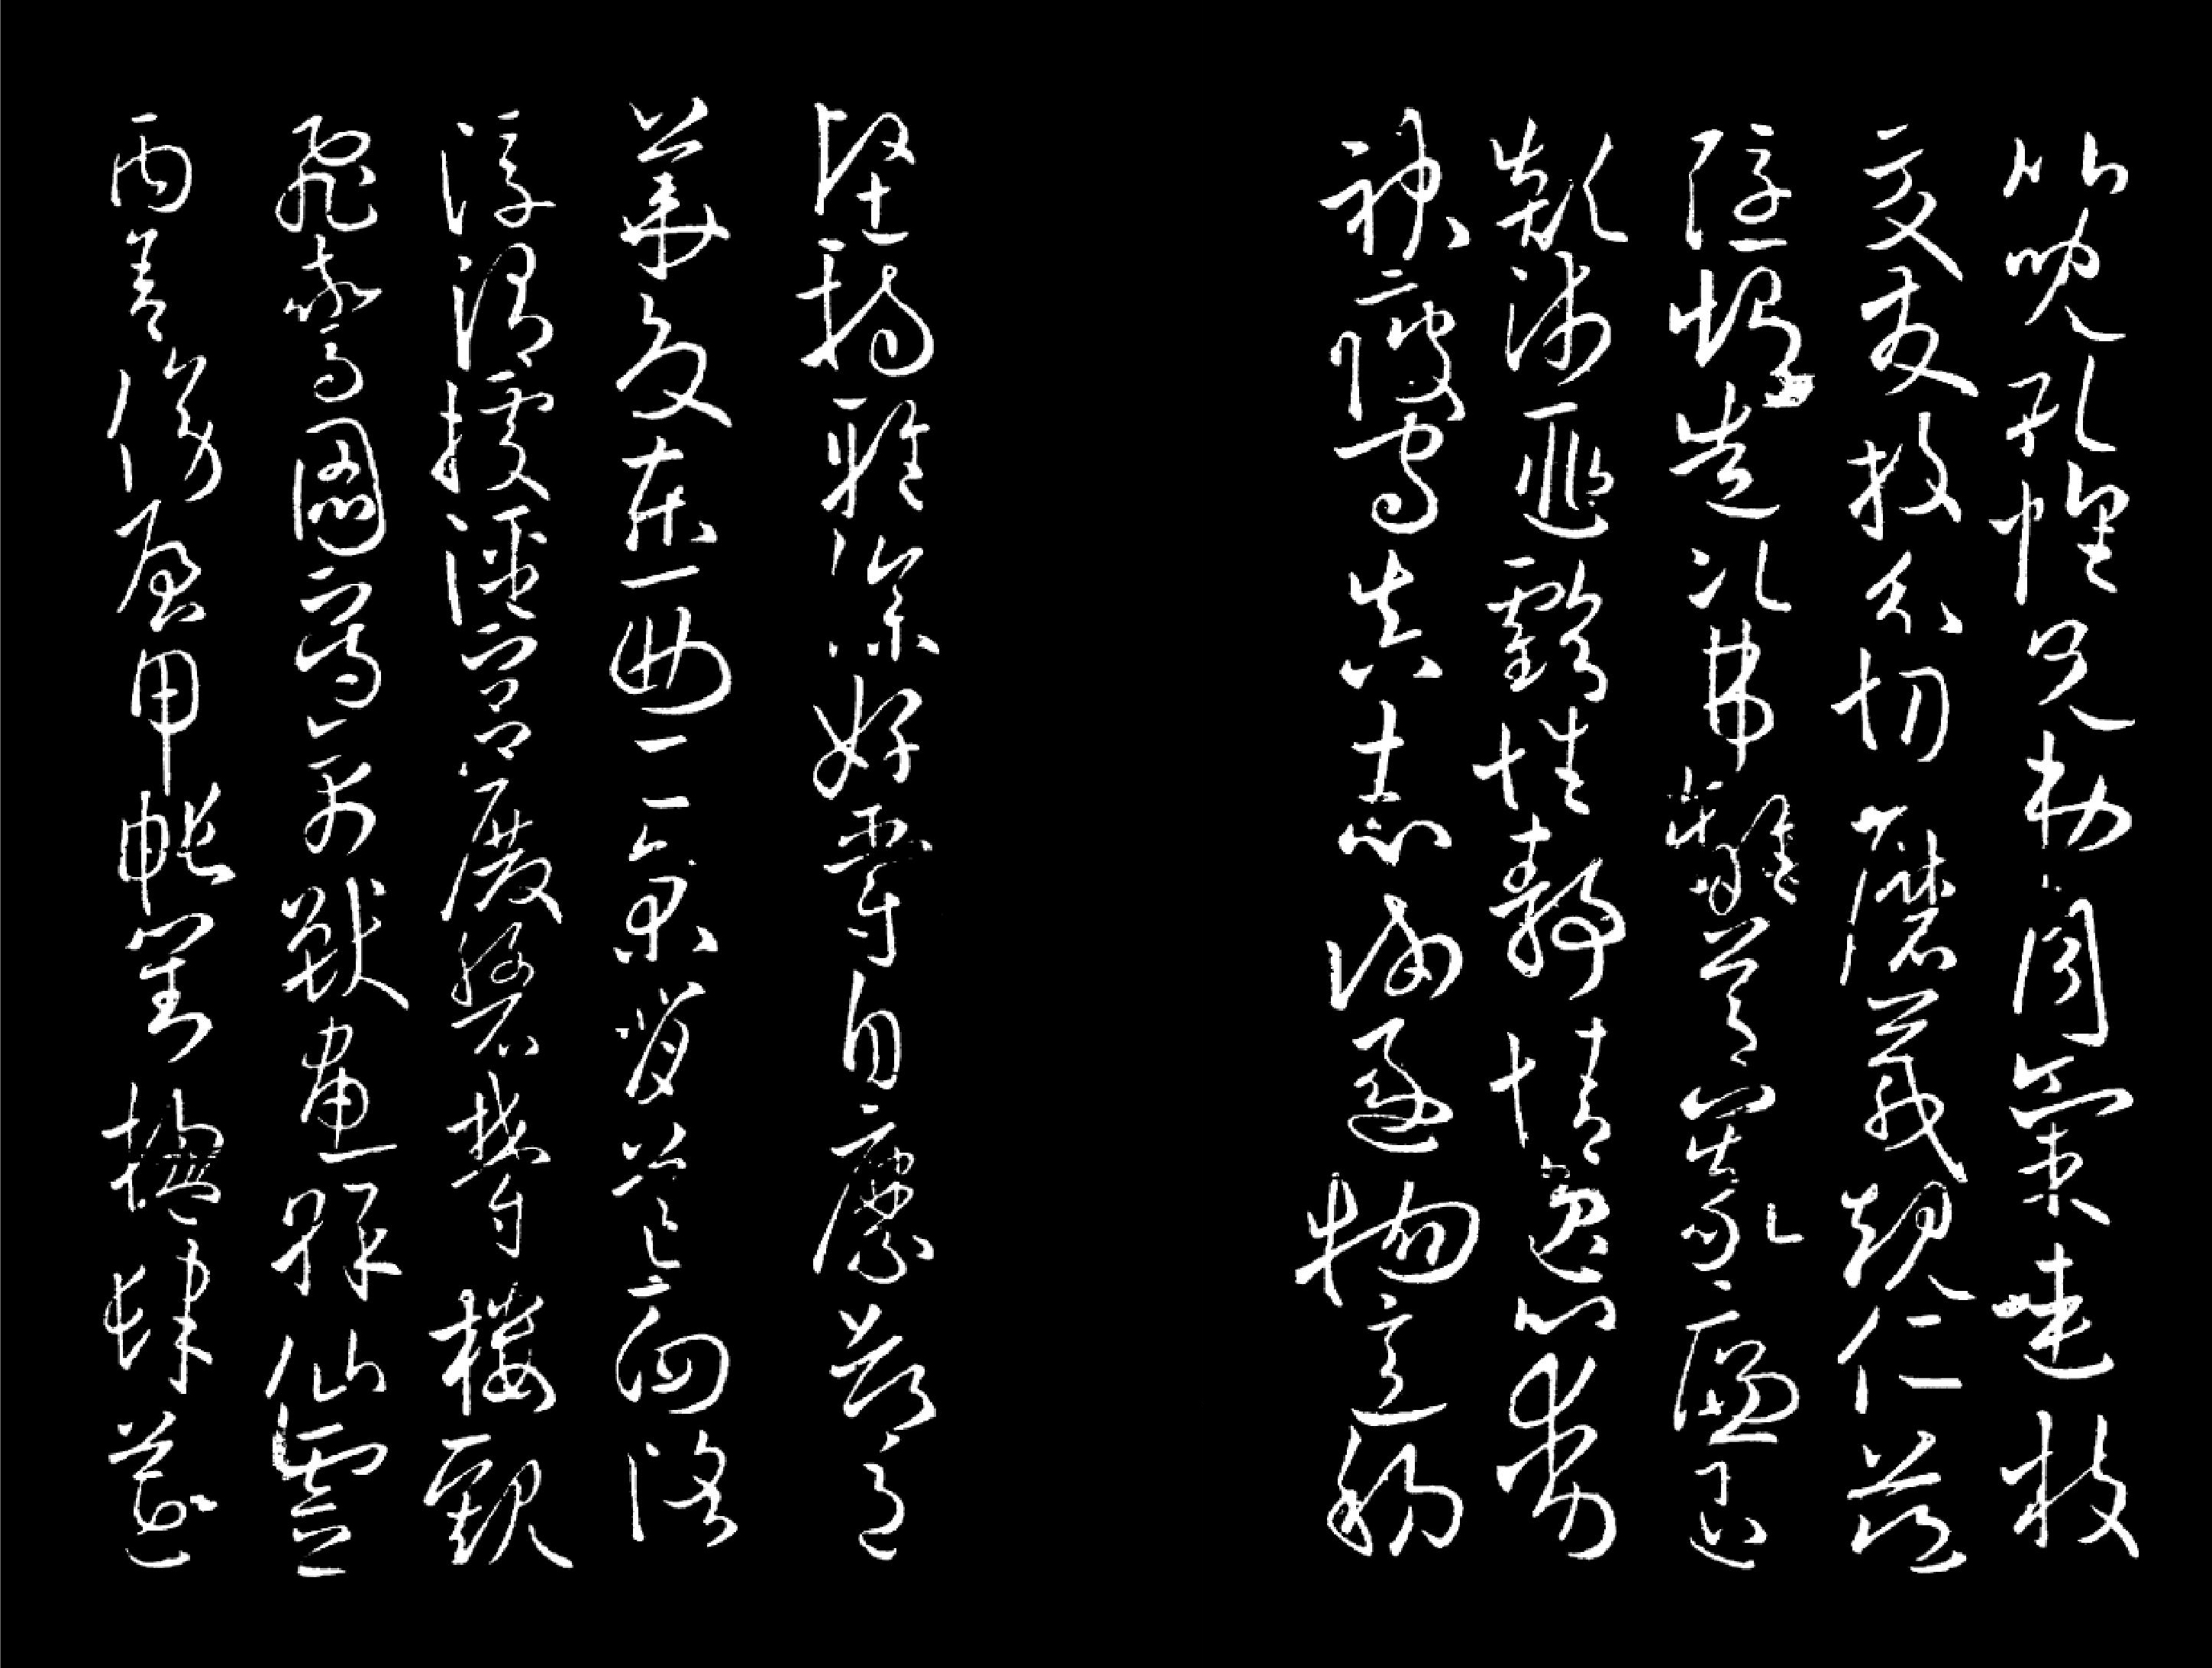 比兒孔懷兄弟同氣連枝
交友投分切磨箴規仁慈
隱惻造次弗離節義廉退
顛沛匪虧性靜情逸心動
神疲守真志滿逐物意移
堅持雅操好爵自縻都邑
華夏東西二京背芒面洛
浮渭據涇宮殿盤鬱樓觀
飛驚圖寫禽獸畫彩仙靈
丙舍傍啟甲帳對楹肆筵